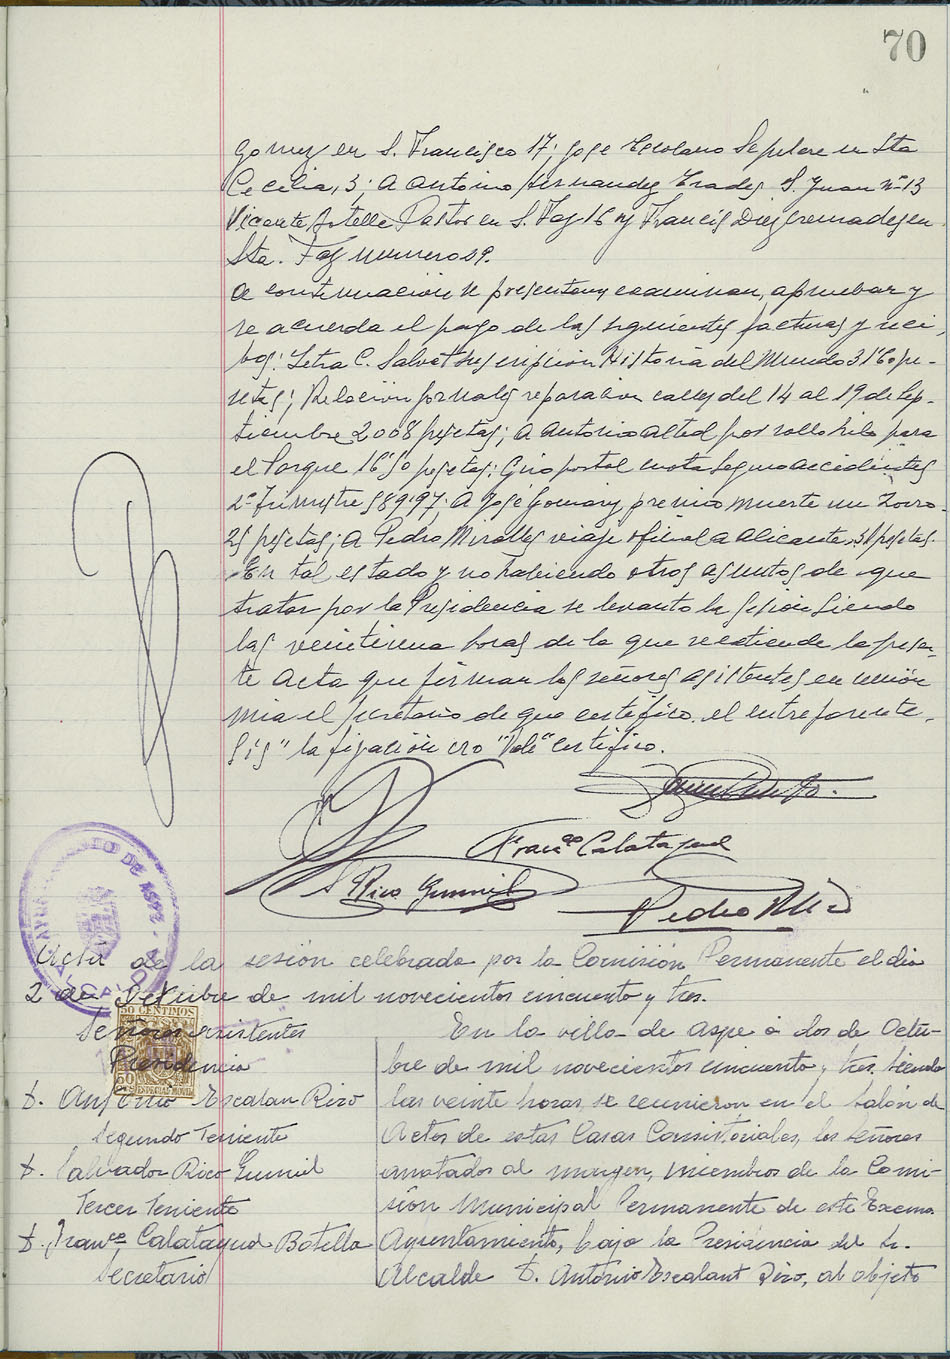 70
Gomez en S. Francisco 17; Jose Escolano Sepulcre en Sta
Cecilia, 3; a Antonio Hernandez Prades S. Juan nº 13
Vicente Botella Pastor en S. Faz 16 y Francis Diez Cremades en
Sta. Faz numero 19.
A continuación se presentan, examinan, aprueban y
se acuerda el pago de las siguientes facturas y reci-
bos: Letra C. Salvat suscripción Historia del Mundo 31'60 pe-
setas; Relación jornales reparacion calles del 14 al 19 de Sep-
tiembre 2008 pesetas; a Antonio Alted por rollo hilo para
el Parque 16'50 pesetas; Giro postal cuota Seguro accidentes
2º Trimestre 589'97. A José premio muerte un zorro
25 pesetas; A Pedro Miralles viaje oficial a Alicante, 31 pesetas.
En tal estado y no habiendo otros asuntos de que
tratar por la Presidencia se levanto la sesión siendo
las veintiuna horas de la que se extiende la presen-
te Acta que firman los señores asistentes en unión
mia el secretario de que certifico. el entreparente-
sis "la fijación no "Vale" Certifico.
Franco Calatayud
S Rico Gumiel
Pedro
AYUNTAMIENTO DE ASPE
ALCALDIA
Acta de la sesión celebrada por la Comisión Permanente el dia
2 de Octubre de mil novecientos cincuenta y tres.
50 CENTIMOS
50 CTS ESPECIAL MOVIL
Señores asistentes
Presidencia
D. Antonio Escalant Pizo
Segundo Teniente
D. Salvador Rico Gumiel
Tercer Teniente
D. Franco Calatayud Botella
Secretario
En la villa de Aspe a dos de Octu-
bre de mil novecientos cincuenta y tres, siendo
las veinte horas, se reunieron en el Salón de
Actos de estas Casas Consistoriales, los señores
anotados al margen, miembros de la Comi-
sión Municipal Permanente de este Excmo
Ayuntamiento, bajo la Presidencia del Sr.
Alcalde D. Antonio Escalant Pizo, al objeto